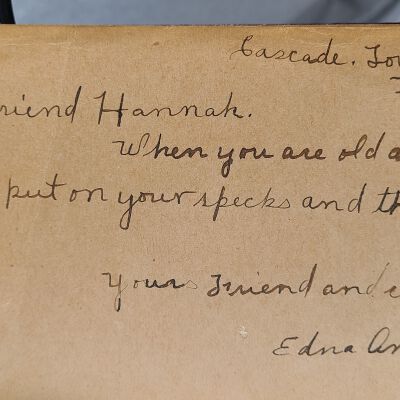 Cascade. Io
riend Hannah.
When you are old a
put on your specks and th
Yours Friend and c
Edna An